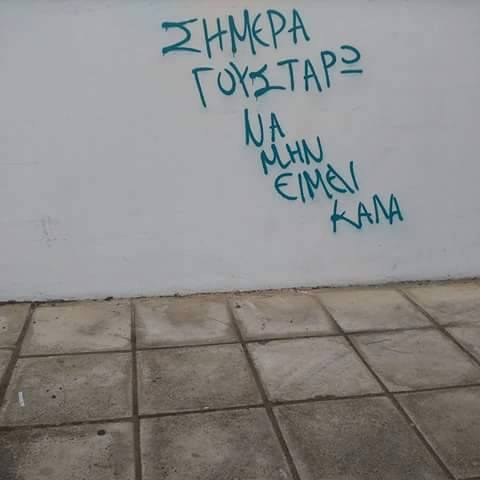 ΣΗΜΕΡΑ
ΓΟΥΣΤΑΡΩ
ΝΑ
ΜΗΝ
ΕΙΜΑΙ
ΚΑΛΑ